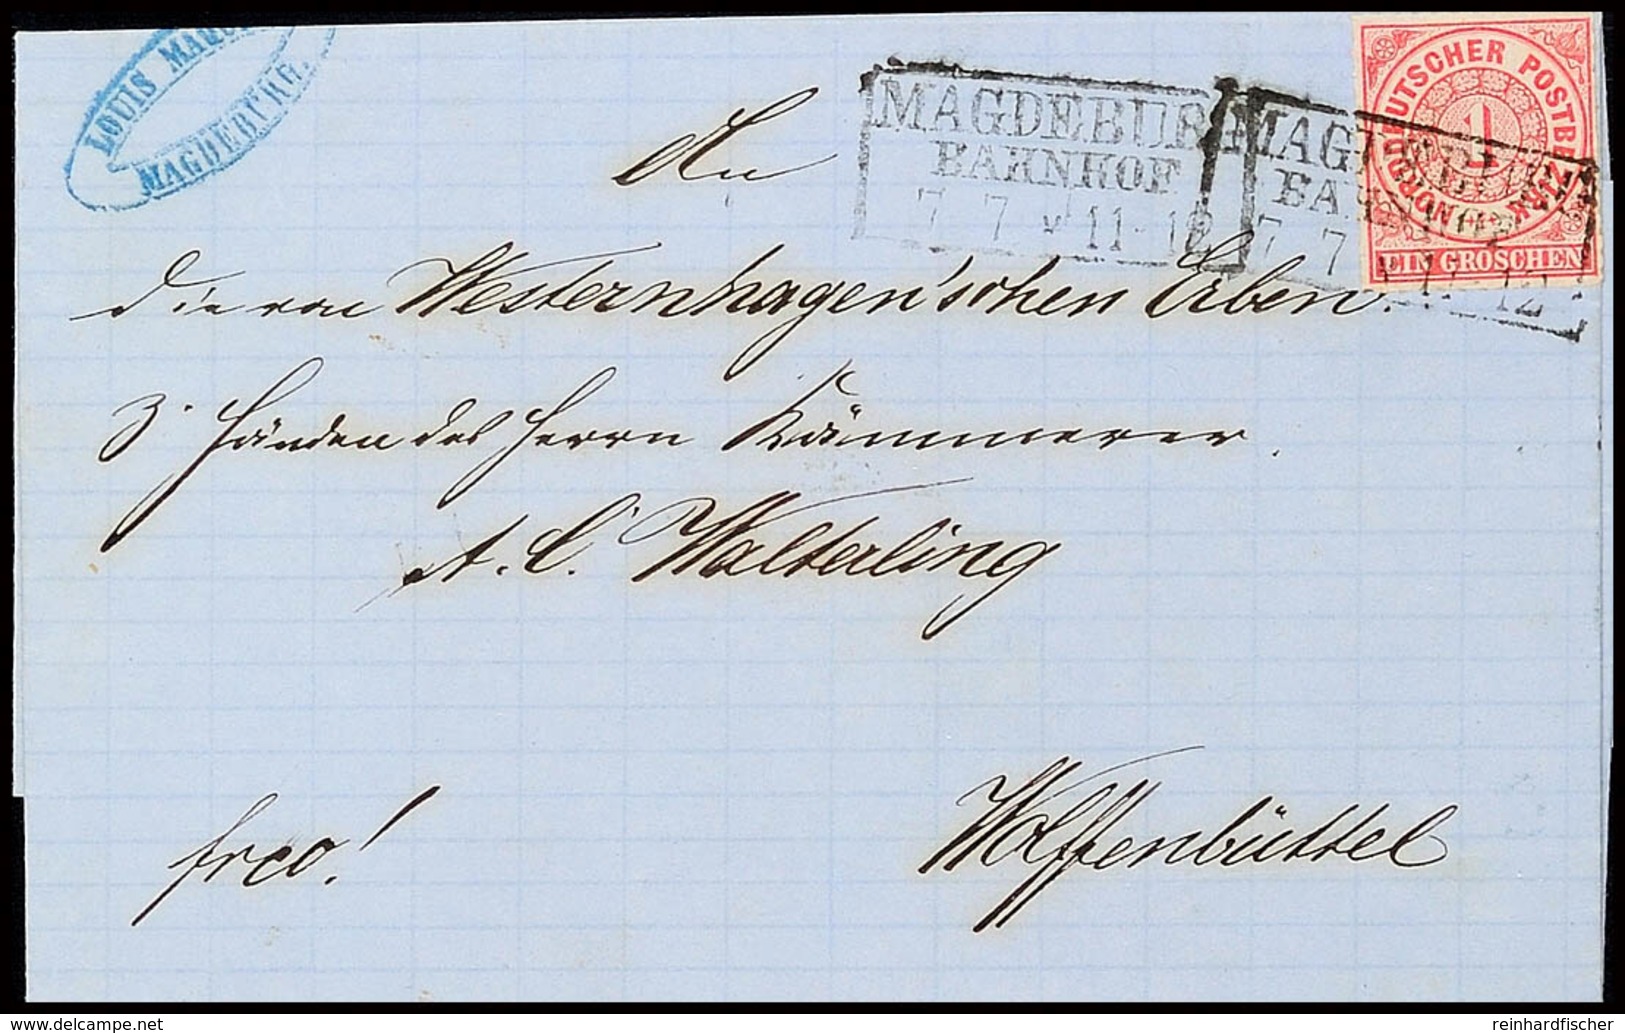 LOUIS
MAGDEBURG.
MAGDEBURG
BAHNHOF
7 7 V 11-12
MAG
BA
7 7 11-12
NORDDEUTSCHER POSTBEZIRK
1
EIN GROSCHEN
An
die von Westernhagen'schen Erben.
z. Händen des Herrn Kämmerer
A. C. Walterling
Wolffenbüttel
frco!
www.delcampe.net
reinhardfischer